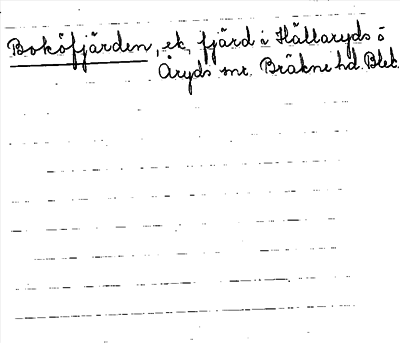 Boköfjärden, ek. fjärd i Hällaryds o
Åryds snr. Bräkne hd. Blek.